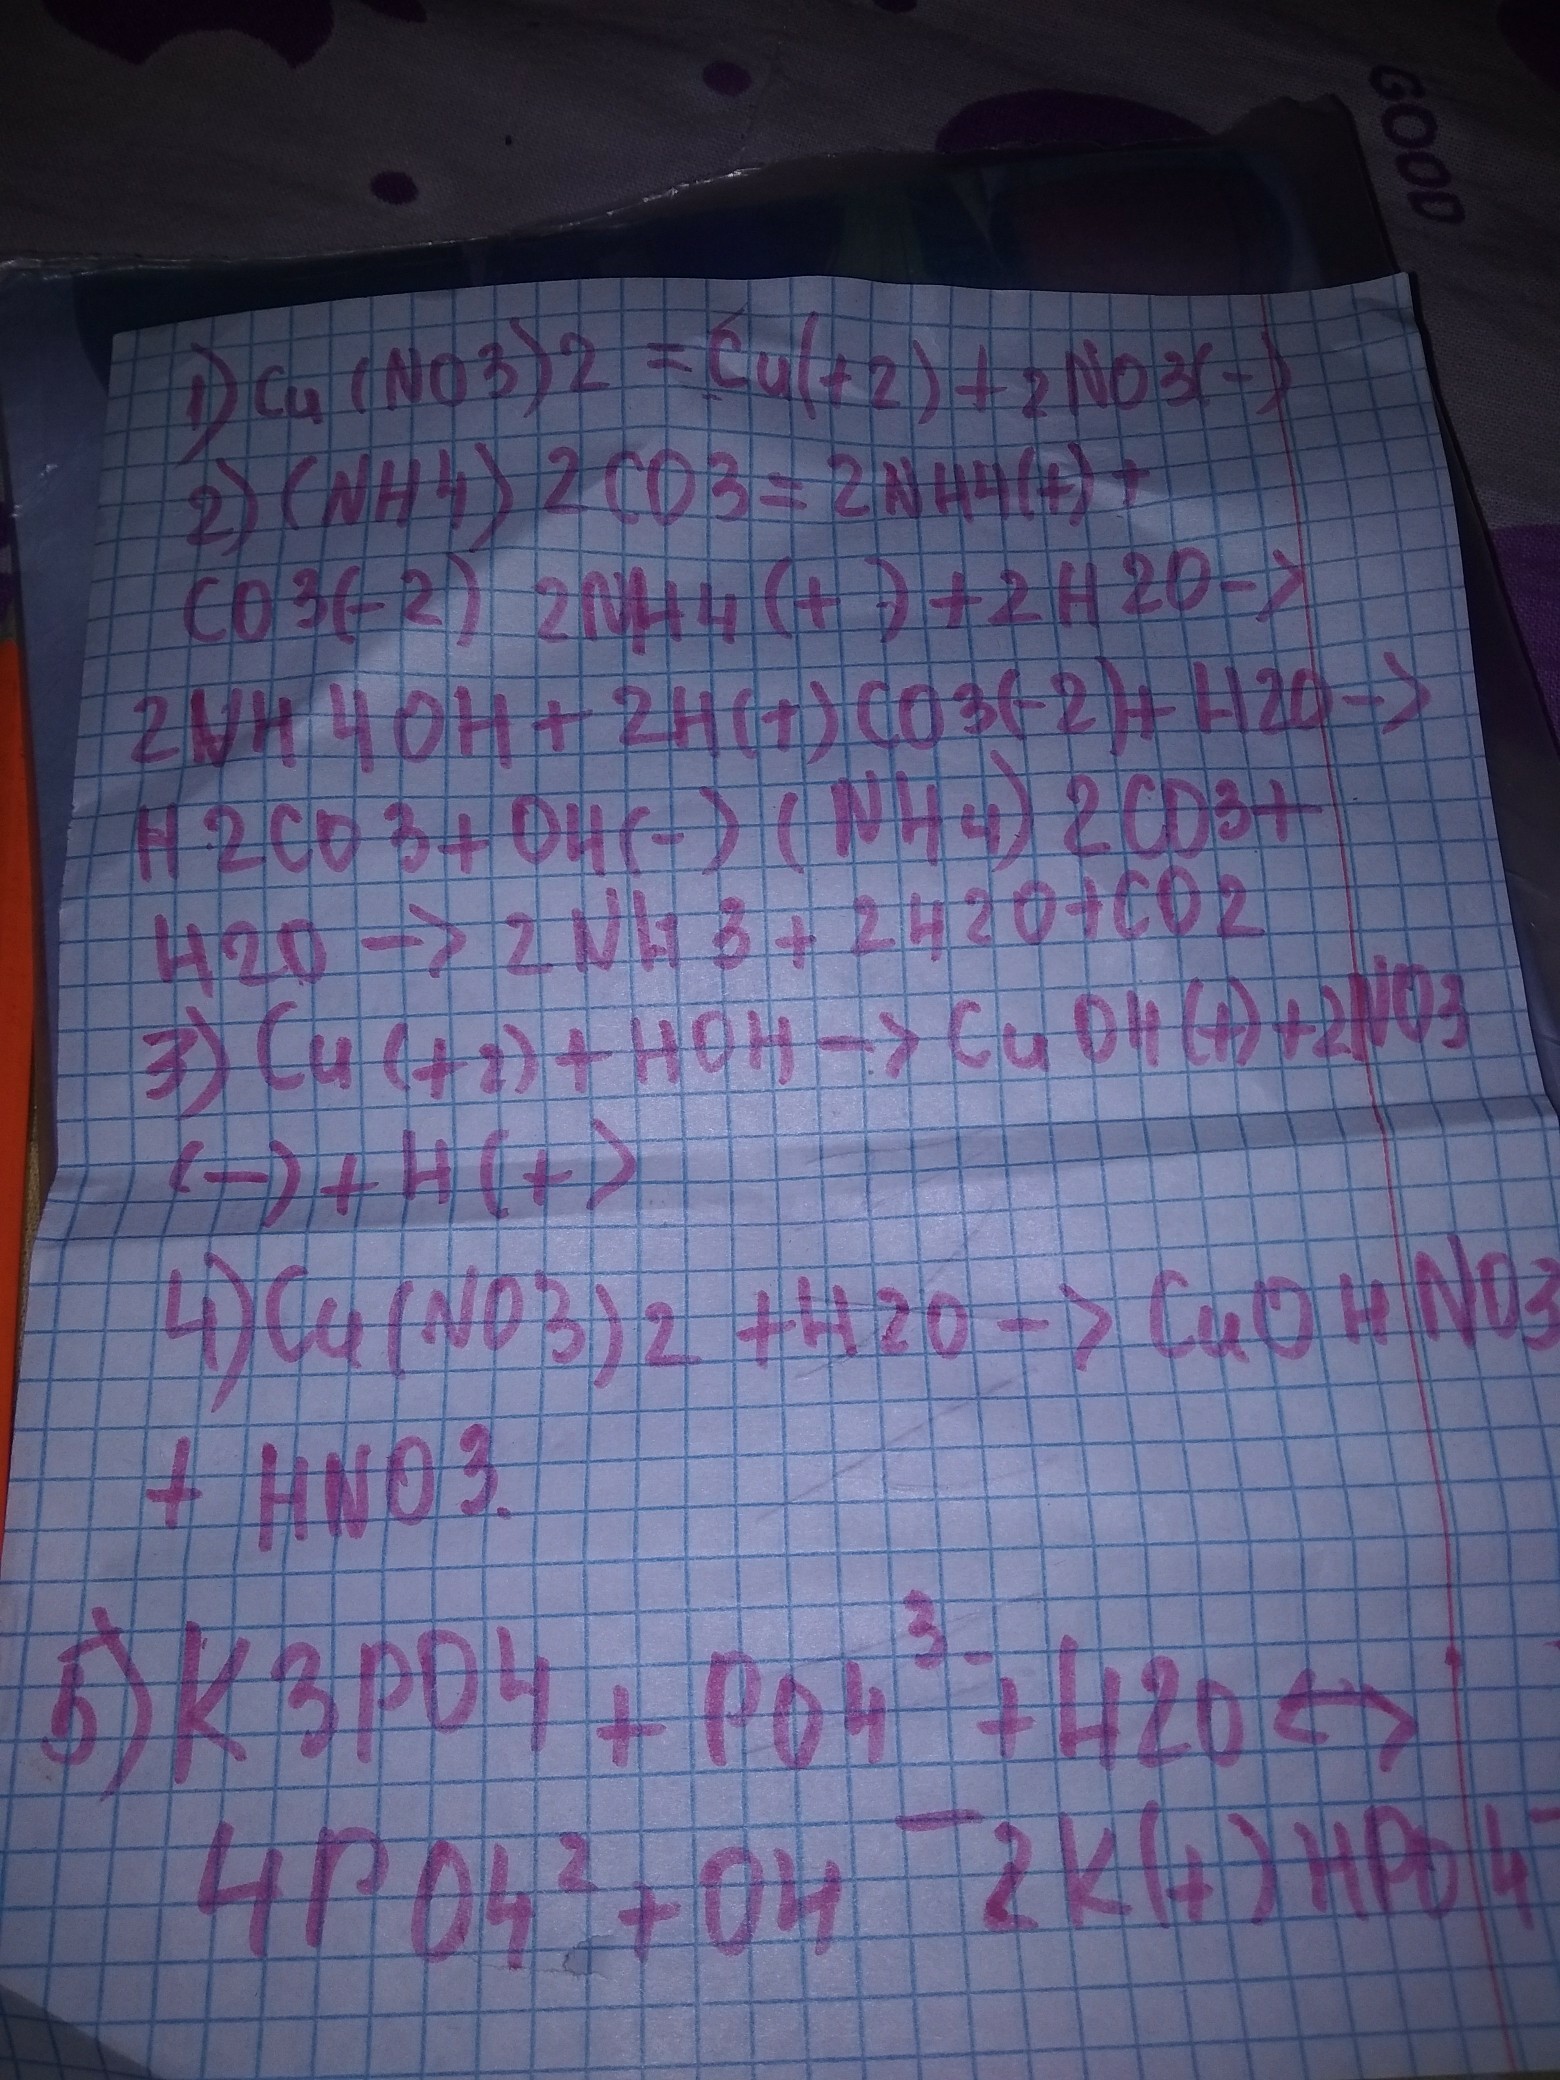 GOOD
1) Cu (NO3)2 = Cu(+2) + 2NO3(-)
2) (NH4) 2CO3 = 2NH4(+) +
CO3(-2) 2NH4 (+) + 2H2O ->
2NH4OH + 2H(+) CO3(-2) + H2O ->
H2CO3 + OH(-) (NH4) 2CO3 +
H2O -> 2NH3 + 2H2O + CO2
3) Cu (+2) + HOH -> CuOH(+) + 2NO3
(-) + H(+>
4) Cu(NO3)2 + H2O -> CuOHNO3
+ HNO3.
5) K3PO4 + PO4³⁻ + H2O <->
4PO4² + OH⁻ 2K(+) HPO4⁻